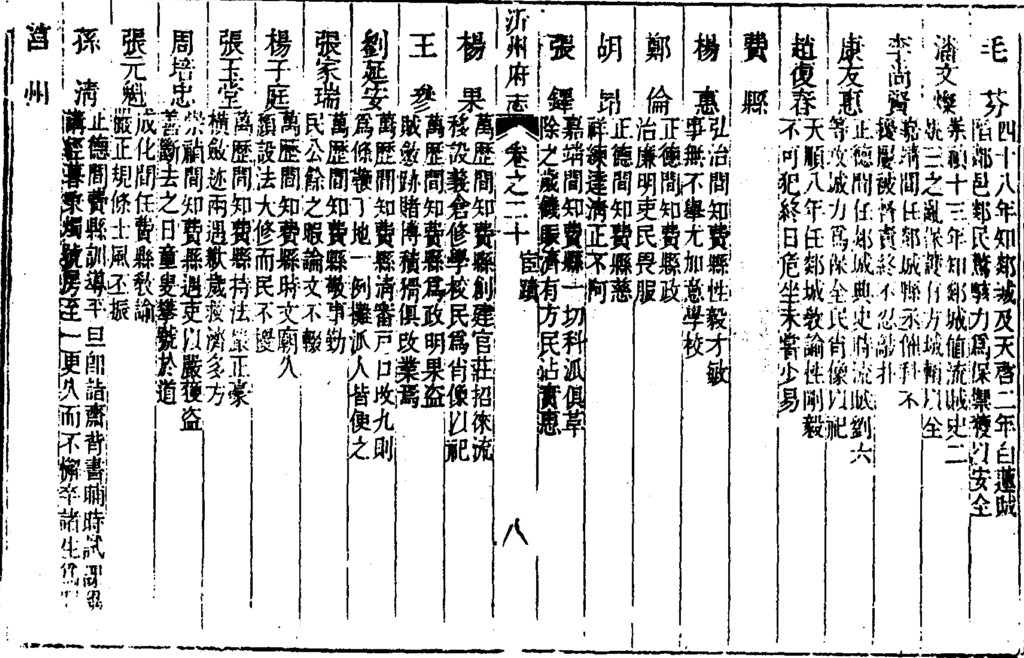 毛芬
四十八年知郯城及天啓二年白蓮賊
陷鄒邑郯民驚駭力爲保禦獲以安全
潘文燦
崇禎十三年知郯城值流賊史二
李尚賢
靖間任郯城縣丞催科不
擾屢被督責終不忍敲扑
康友惠
正德間任郯城典史時流賊劉六
等攻城力爲保全民肖像以祀
趙復春
天順八年任郯城教諭性剛毅
不可犯終日危坐未嘗少易
費縣
楊惠
弘治間知費縣性毅才敏
事無不舉尤加意學校
鄭倫
正德間知費縣政
治廉明吏民畏服
胡昂
正德間知費縣慈
祥練達清正不阿
張鐸
嘉靖間知費縣一切科派俱革
除之歲饑賑濟有方民沾實惠
沂州府志 卷之二十 宦蹟 八
楊果
萬歷間知費縣創建官莊招徠流
移設義倉修學校民爲肖像以祀
王參
萬歷間知費縣爲政明果盜
賊斂跡賭博積猾俱改業焉
劉延安
萬歷間知費縣清審戶口改九則
爲條鞭丁地一例攤派人皆便之
張家瑞
萬歷間知費縣敬事勤
民公餘之暇論文不輟
楊子庭
萬歷間知費縣時文廟久
頹設法大修而民不擾
張玉堂
萬歷間知費縣持法嚴正豪
橫斂迹兩遇歉歲救濟多方
周培忠
崇禎間知費縣遇吏以嚴獲盜
善斷去之日童叟攀號於道
張元魁
成化間任費縣教諭
嚴正規條士風丕振
孫清
正德間費縣訓導平旦卽詣齋背書晡時試課
講經暮秉燭號房至一更久而不懈卒諸生爲
莒州